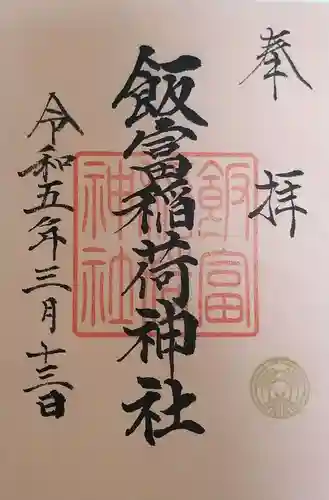 奉拝
飯富稲荷神社
飯富稲荷神社
令和五年三月十三日